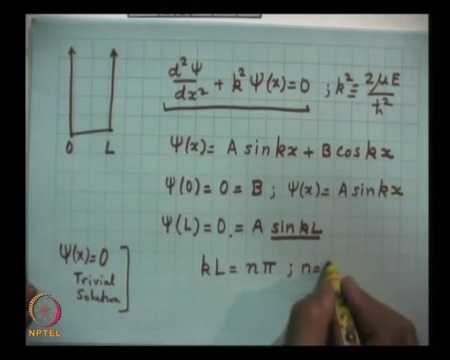 d²Ψ/dx² + k² Ψ(x) = 0 ; k² = 2μE/ħ²
0 L
Ψ(x) = A sin kx + B cos kx
Ψ(0) = 0 = B ; Ψ(x) = A sin kx
Ψ(L) = 0 . = A sin kL
Ψ(x) = 0
Trivial
Solution
kL = nπ ; n =
NPTEL